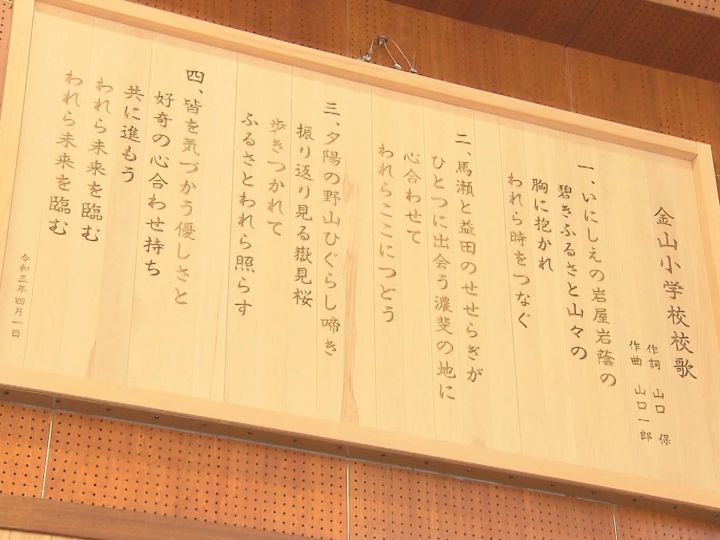 金山小学校校歌
作詞 山口 保
作曲 山口一郎
一、いにしえの岩屋岩蔭の
碧きふるさと山々の
胸に抱かれ
われら時をつなぐ
二、馬瀬と益田のせせらぎが
ひとつに出会う濃斐の地に
心合わせて
われらここにつどう
三、夕陽の野山ひぐらし啼き
振り返り見る嶽見桜
歩きつかれて
ふるさとわれら照らす
四、皆を気づかう優しさと
好奇の心合わせ持ち
共に進もう
われら未来を臨む
われら未来を臨む
令和三年四月一日